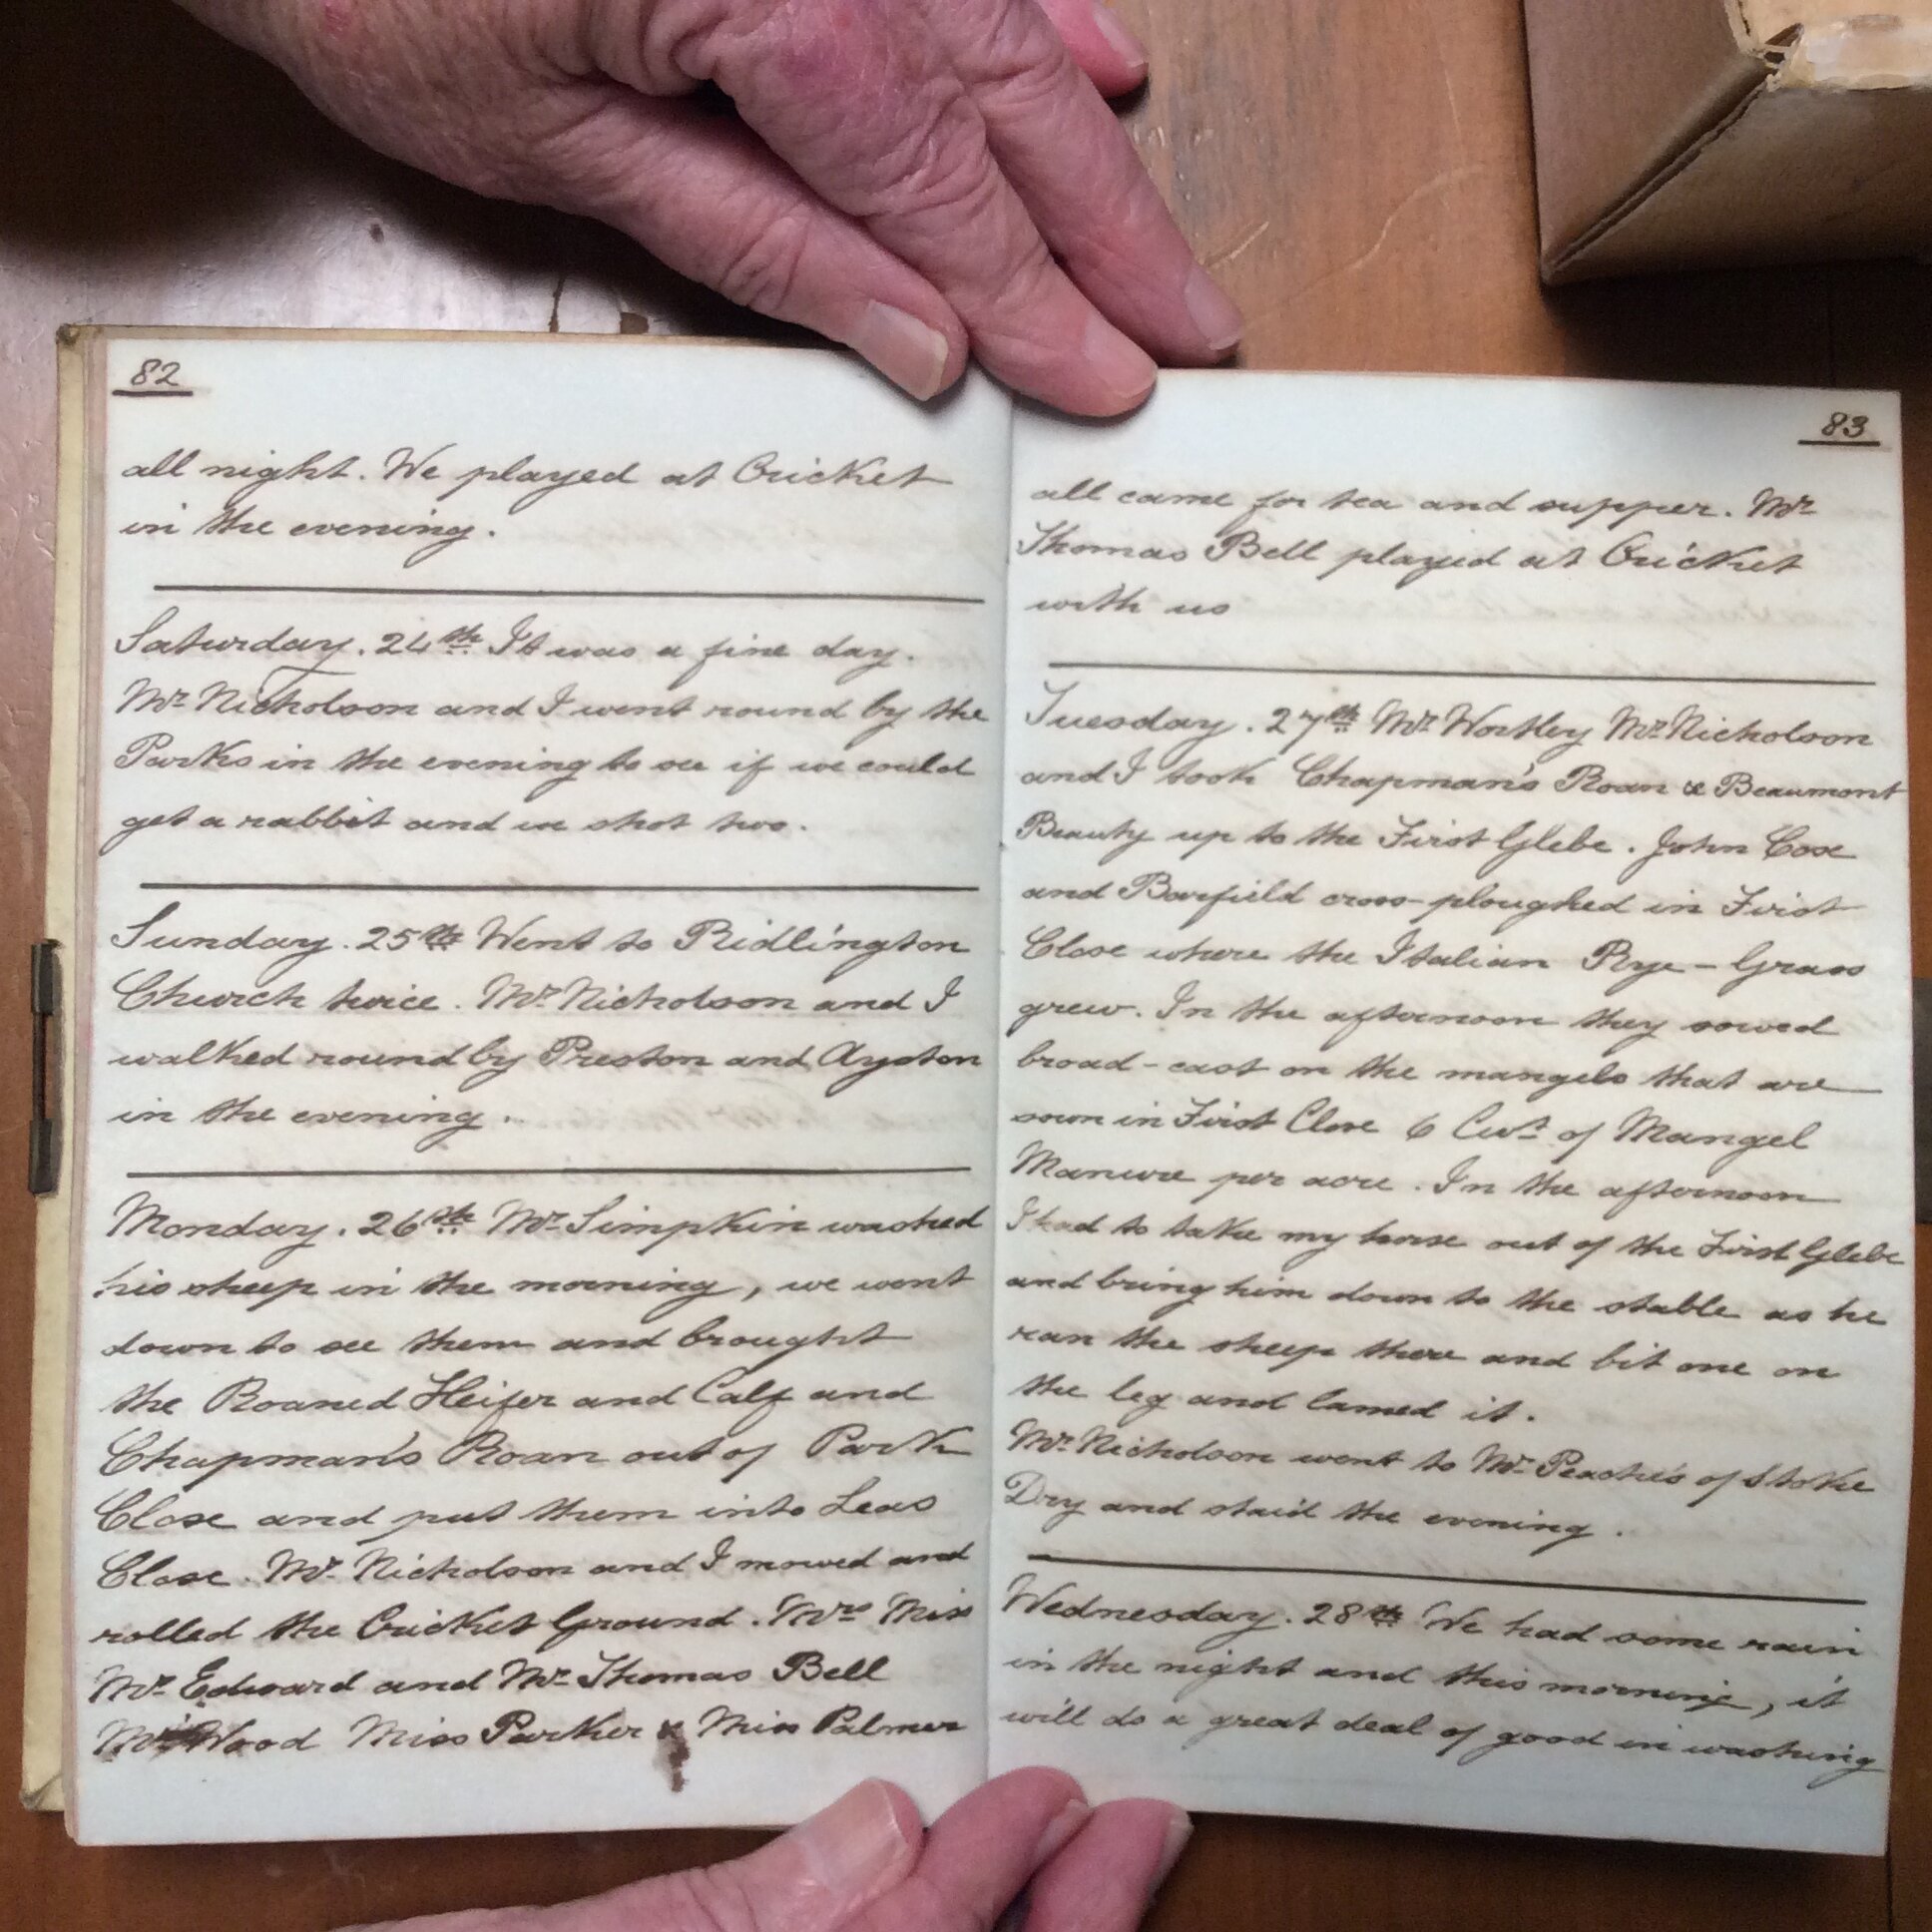 82
all night. We played at Cricket
in the evening.
Saturday. 24th It was a fine day.
Mr Nicholson and I went round by the
Parks in the evening to see if we could
get a rabbit and we shot two.
Sunday. 25th Went to Ridlington
Church twice. Mr Nicholson and I
walked round by Preston and Ayston
in the evening.
Monday. 26th Mr Simpkin washed
his sheep in the morning, we went
down to see them and brought
the Roaned Heifer and Calf and
Chapman's Roan out of Park
Close and put them into Leas
Close. Mr Nicholson and I mowed and
rolled the Cricket Ground. Mrs Miss
Mr Edward and Mr Thomas Bell
Mr Wood Miss Parker & Miss Palmer
83
all came for tea and supper. Mr
Thomas Bell played at Cricket
with us
Tuesday. 27th Mr Wortley Mr Nicholson
and I took Chapman's Roan & Beaumont
Beauty up to the First Glebe. John Cox
and Barfield cross-ploughed in First
Close where the Italian Rye-Grass
grew. In the afternoon they sowed
broad-cast on the mangels that are
sown in First Close 6 Cwt of Mangel
Manure per acre. In the afternoon
I had to take my horse out of the First Glebe
and bring him down to the stable as he
ran the sheep there and bit one on
the leg and lamed it.
Mr Nicholson went to Mr Peache's of Stoke
Dry and staid the evening.
Wednesday. 28th We had some rain
in the night and this morning, it
will do a great deal of good in washing